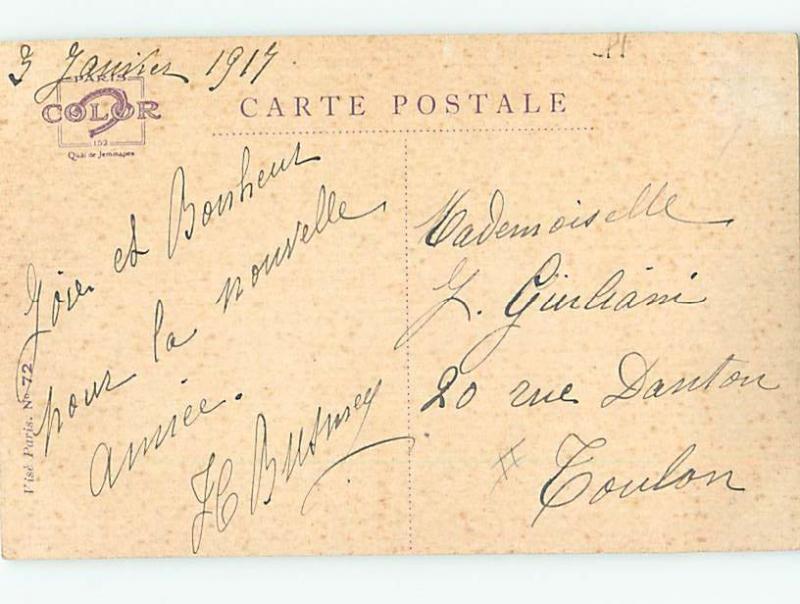 3 Janvier 1917
PARIS
COLOR
152
Quai de Jemmapes
CARTE POSTALE
Joie et Bonheur
pour la nouvelle
année.
Visé Paris. No 72
Mademoiselle
Giuliani
20 rue Danton
Toulon